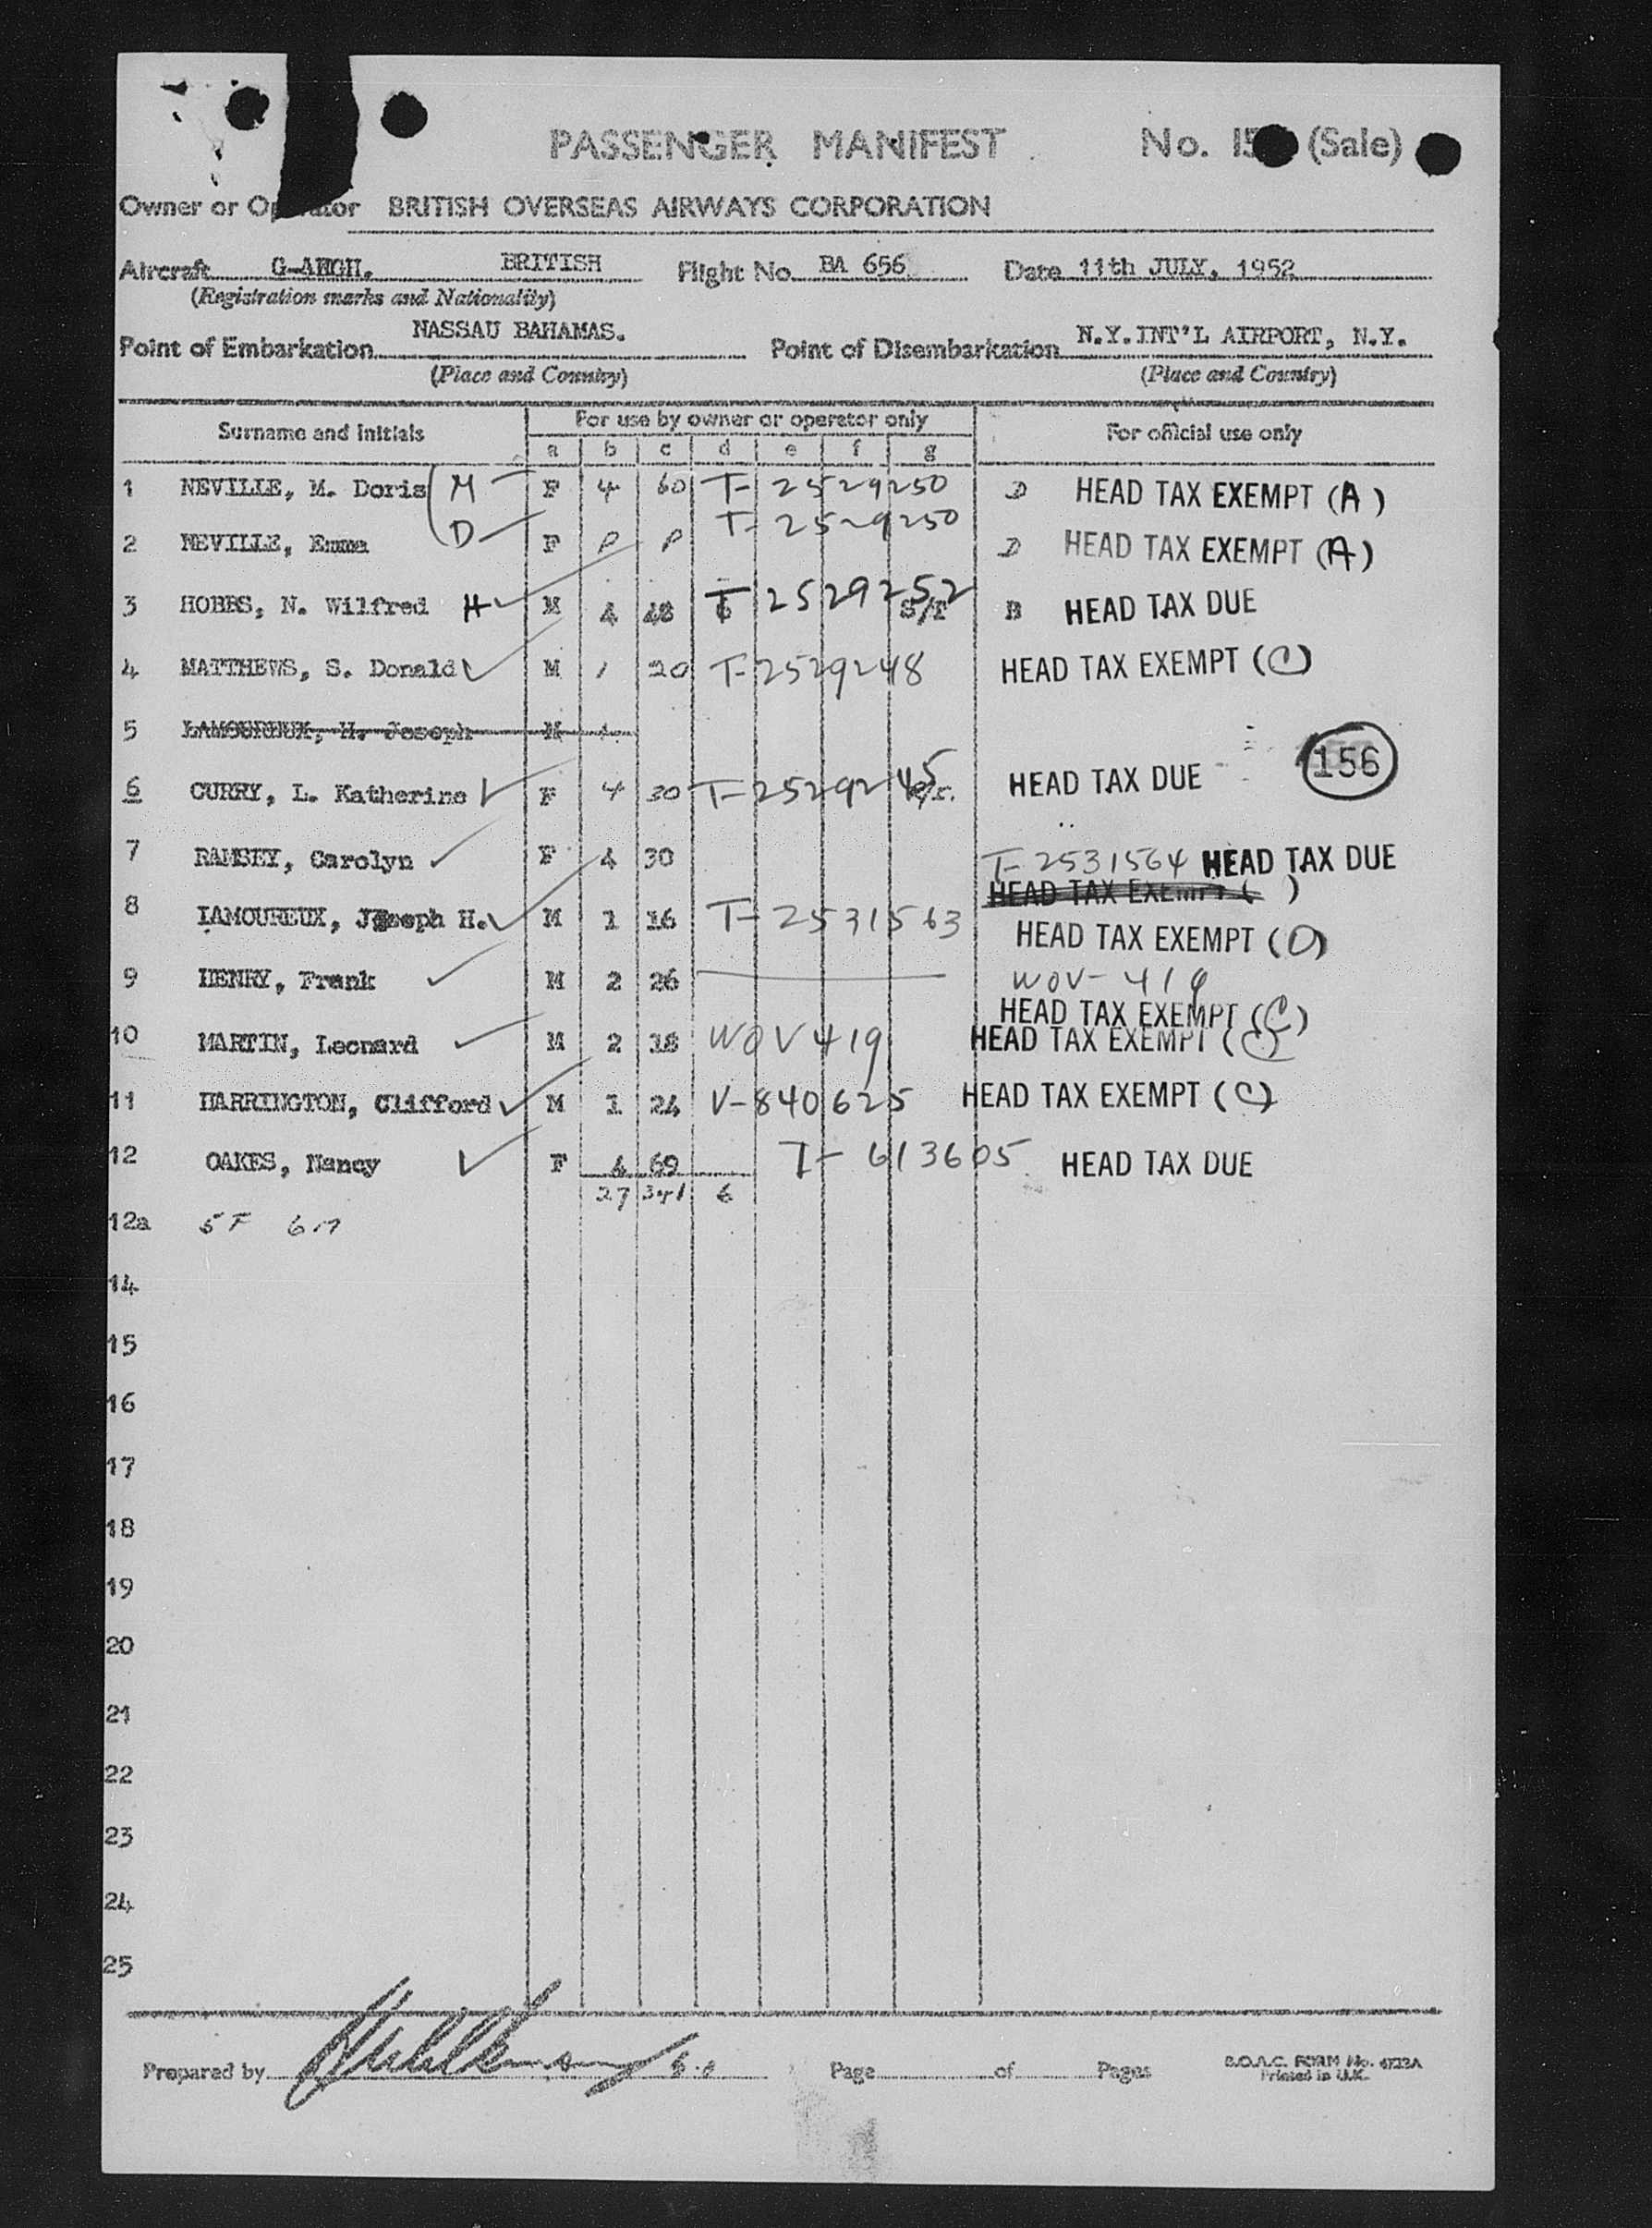 PASSENGER MANIFEST No. 15 (Sale)
Owner or Operator BRITISH OVERSEAS AIRWAYS CORPORATION
Aircraft G-AHGH. BRITISH Flight No. BA 656 Date 11th JULY, 1952
(Registration marks and Nationality)
Point of Embarkation NASSAU BAHAMAS. Point of Disembarkation N.Y.INT'L AIRPORT, N.Y.
(Place and Country) (Place and Country)
Surname and initials For use by owner or operator only For official use only
a b c d e f g
1 NEVILLE, M. Doris M F 4 60 T-2529250 D HEAD TAX EXEMPT (A)
2 NEVILLE, Emma D F P P T-2529250 D HEAD TAX EXEMPT (A)
3 HOBBS, N. Wilfred H M 4 48 T-2529252 S/T B HEAD TAX DUE
4 MATTHEWS, S. Donald M 1 20 T-2529248 HEAD TAX EXEMPT (C)
5 LAMOUREUX, H. Joseph M
156
6 CURRY, L. Katherine F 4 30 T-2529245 HEAD TAX DUE
7 RAMSEY, Carolyn F 4 30 T-2531564 HEAD TAX DUE
HEAD TAX EXEMPT ( )
8 LAMOUREUX, Joseph H. M 1 16 T-2531563 HEAD TAX EXEMPT (D)
9 HENRY, Frank M 2 26 WOV-419
HEAD TAX EXEMPT (C)
10 MARTIN, Leonard M 2 18 WOV419 HEAD TAX EXEMPT (C)
11 HARRINGTON, Clifford M 1 24 V-840625 HEAD TAX EXEMPT (C)
12 OAKES, Nancy F 4 69 T-613605 HEAD TAX DUE
27 341 6
12a 5F 6M
14
15
16
17
18
19
20
21
22
23
24
25
Prepared by Page of Pages B.O.A.C. FORM No.
Printed in U.K.